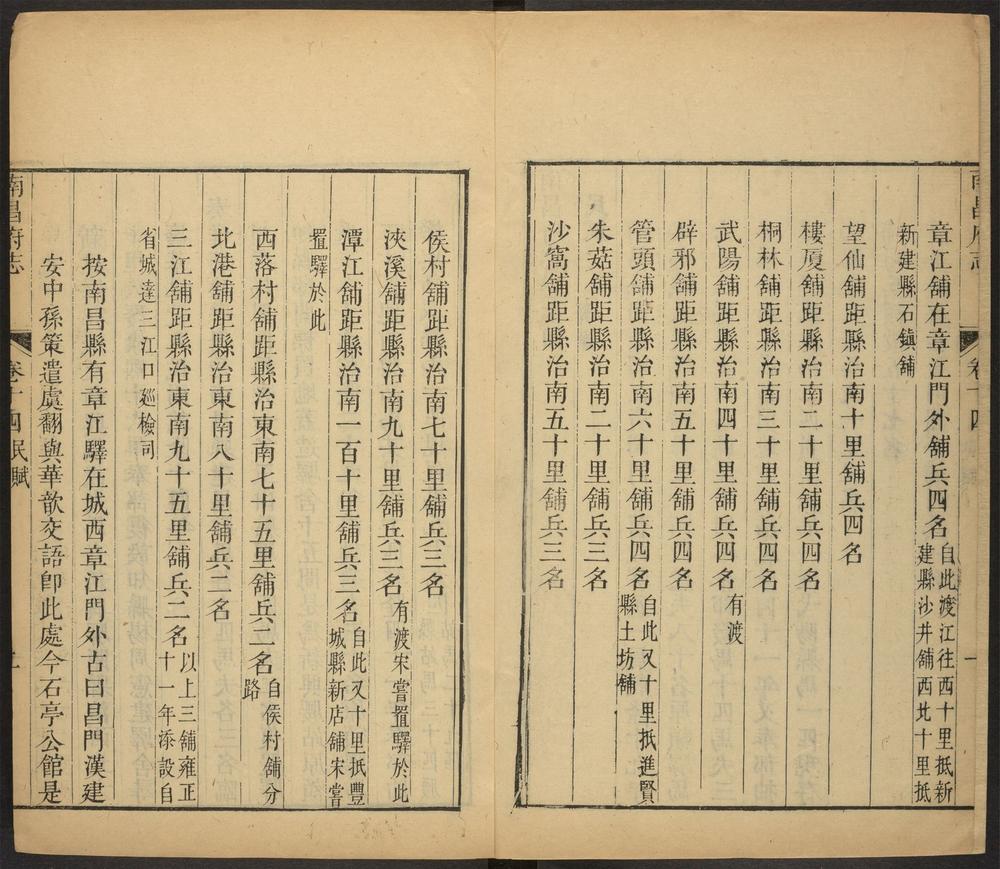 章江舖在章江門外舖兵四名自此渡江往西十里抵新建縣沙井舖西北十里抵
新建縣石鎮舖
望仙舖距縣治南十里舖兵四名
樓厦舖距縣治南二十里舖兵四名
桐林舖距縣治南三十里舖兵四名
武陽舖距縣治南四十里舖兵四名有渡
辟邪舖距縣治南五十里舖兵四名
管頭舖距縣治南六十里舖兵四名自此又十里抵進賢縣土坊舖
朱菇舖距縣治南二十里舖兵三名
沙窩舖距縣治南五十里舖兵三名
侯村舖距縣治南七十里舖兵三名
浹溪舖距縣治南九十里舖兵三名有渡宋嘗置驛於此
潭江舖距縣治南一百十里舖兵三名自此又十里抵豐城縣新店舖宋嘗
置驛於此
西落村舖距縣治東南七十五里舖兵二名自侯村舖分路
北港舖距縣治東南八十里舖兵二名
三江舖距縣治東南九十五里舖兵二名以上三舖雍正十一年添設自
省城達三江口廵檢司
按南昌縣有章江驛在城西章江門外古曰昌門漢建
安中孫策遣虞翻與華歆交語卽此處今石亭公館是
南昌府志
卷十四民賦
二